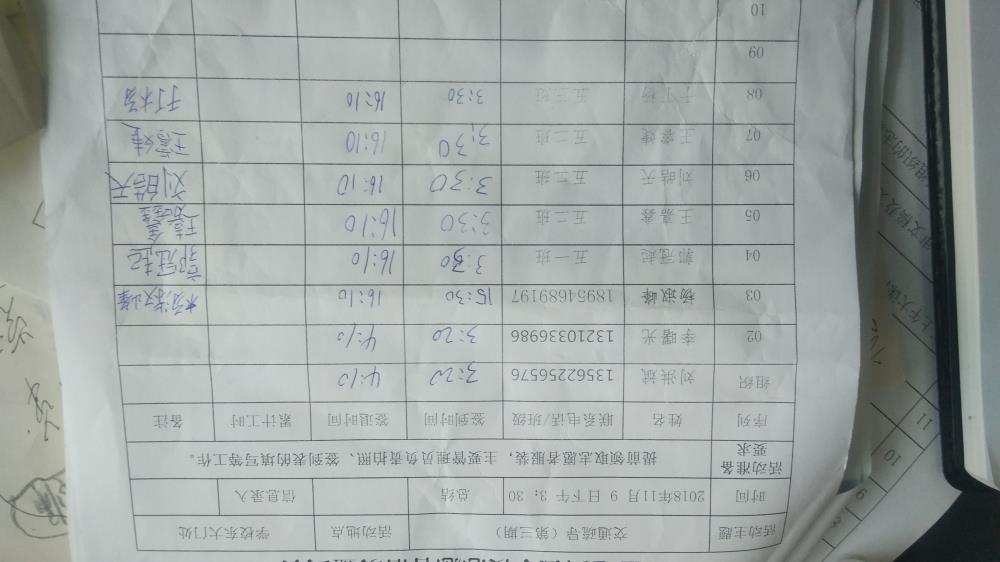 活动主题 交通疏导（第三期） 活动地点 学校东大门处
时间 2018年11月 9 日下午 3：30 总结 信息录入
活动准备要求 提前领取志愿者服装，主要管理员负责拍照、签到表的填写等工作。
序列 姓名 联系电话/班级 签到时间 签退时间 累计工时 备注
组织 刘洪斌 13562256576 3:20 4:10
02 李曙光 13210336986 3:20 4:10
03 杨淑峰 18954689197 15:30 16:10 杨淑峰
04 郭冠起 五一班 3:30 16:10 郭冠起
05 王嘉鑫 五二班 3:30 16:10 王嘉鑫
06 刘皓天 五二班 3:30 16:10 刘皓天
07 王睿婕 五二班 3:30 16:10
08 五三班 3:30 16:10
09
10
11
10
9